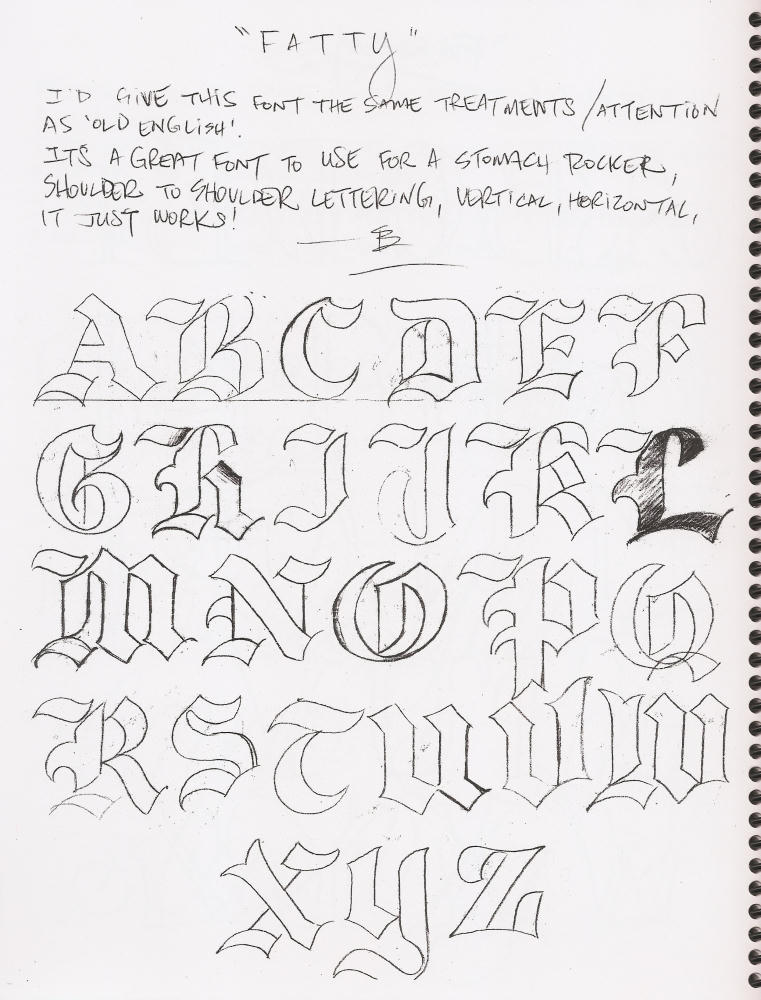 "FATTY"
I'D GIVE THIS FONT THE SAME TREATMENTS/ATTENTION
AS 'OLD ENGLISH'.
ITS A GREAT FONT TO USE FOR A STOMACH ROCKER,
SHOULDER TO SHOULDER LETTERING, VERTICAL, HORIZONTAL,
IT JUST WORKS!
A B C D E F
G H I J K L
M N O P Q
R S T U V W
X Y Z